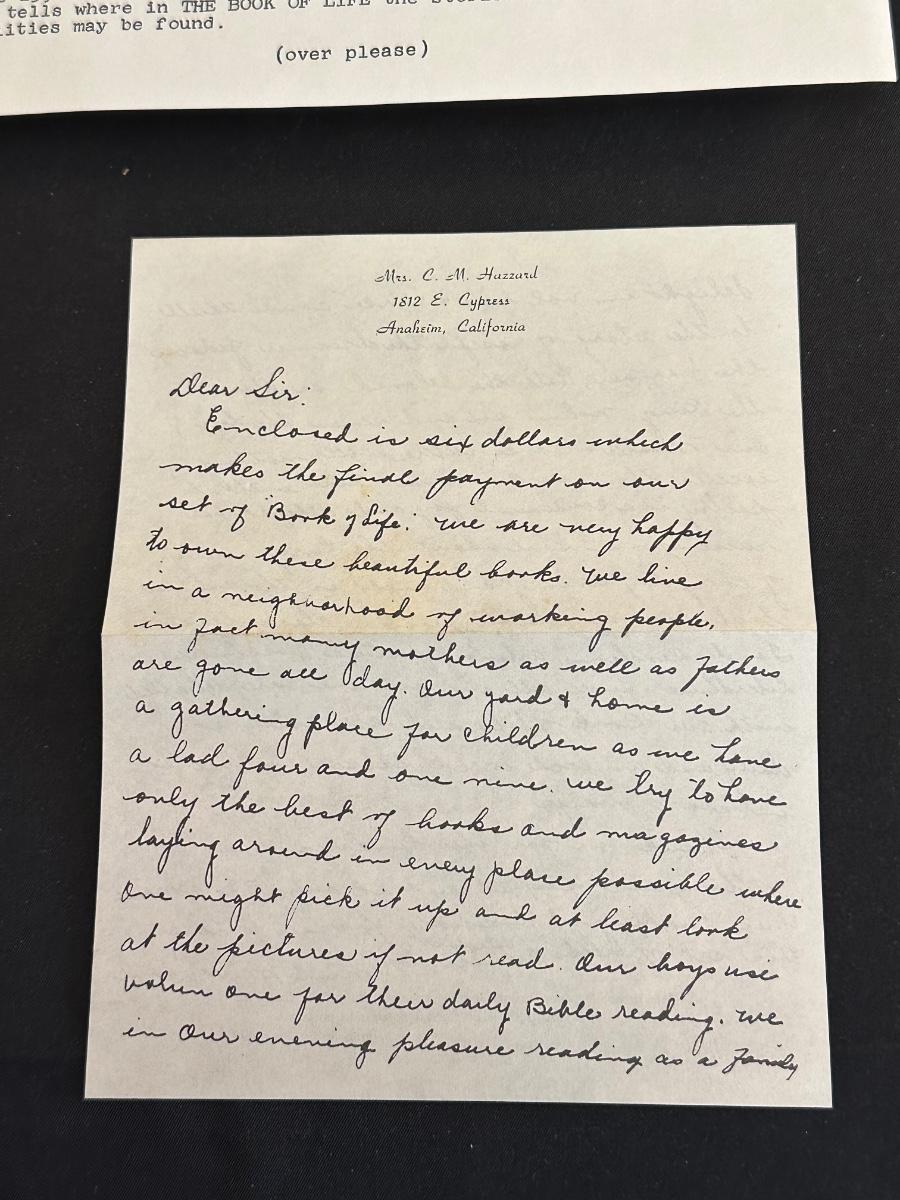 tells where in THE BOOK OF LIFE the
ities may be found.
(over please)
Mrs. C. M. Hazzard
1812 E. Cypress
Anaheim, California
Dear Sir:
Enclosed is six dollars which
makes the final payment on our
set of "Book of Life." We are very happy
to own these beautiful books. We live
in a neighborhood of working people,
in fact many mothers as well as fathers
are gone all day. Our yard & home is
a gathering place for children as we have
a lad four and one nine. We try to have
only the best of books and magazines
laying around in every place possible where
one might pick it up and at least look
at the pictures if not read. Our boys use
volum one for their daily Bible reading. We
in our evening pleasure reading as a family